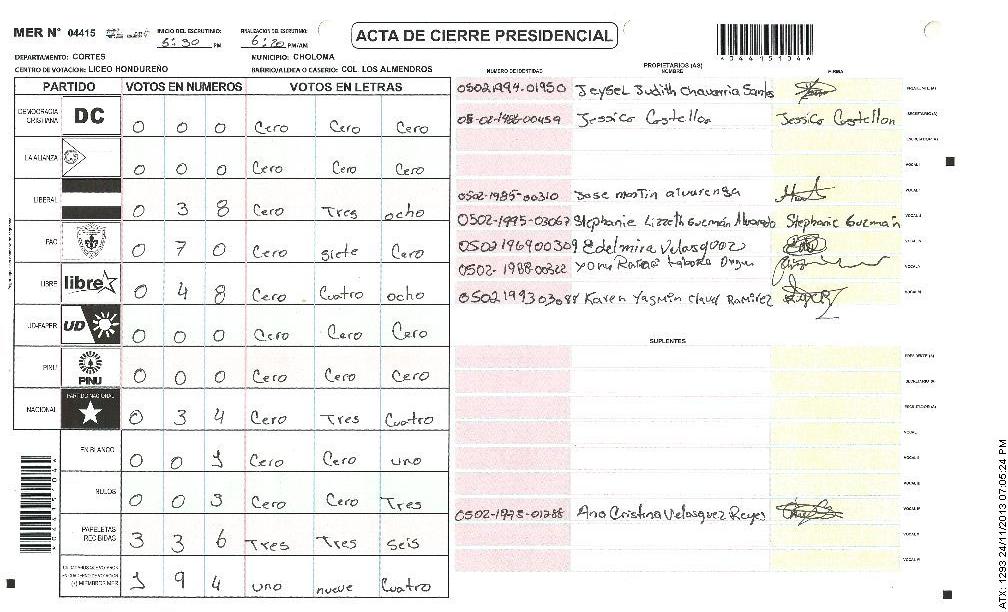 MER N° 04415
INICIO DEL ESCRUTINIO: 5:30 PM
FINALIZACION DEL ESCRUTINIO: 6:20 PM/AM
ACTA DE CIERRE PRESIDENCIAL
DEPARTAMENTO: CORTES
MUNICIPIO: CHOLOMA
CENTRO DE VOTACION: LICEO HONDUREÑO
BARRIO/ALDEA O CASERIO: COL. LOS ALMENDROS
PARTIDO VOTOS EN NUMEROS VOTOS EN LETRAS
DEMOCRACIA CRISTIANA DC 0 0 0 Cero Cero Cero
LA ALIANZA 0 0 0 Cero Cero Cero
LIBERAL 0 3 8 Cero Tres ocho
PAC 0 7 0 Cero siete Cero
LIBRE libre 0 4 8 Cero Cuatro ocho
UD-FAPER UD 0 0 0 Cero Cero Cero
PINU PINU 0 0 0 Cero Cero Cero
NACIONAL PARTIDO NACIONAL 0 3 4 Cero Tres Cuatro
EN BLANCO 0 0 1 Cero Cero uno
NULOS 0 0 3 Cero Cero Tres
PAPELETAS RECIBIDAS 3 3 6 Tres Tres seis
(+) MIEMBROS MER 1 9 4 uno nueve Cuatro
PROPIETARIOS (AS)
NUMERO DE IDENTIDAD NOMBRE FIRMA
05021994-01950 Jeysel Judith Chavarria Santos
05-02-1988-00459 Jessica Castellon Jessica Castellon
0502-1985-00310 Jose martin alvarenga
0502-1995-03067 Stephanie Lizzeth Guzmán Alvarado Stephanie Guzmán
0502196900309 Edelmira Velasquez
0502-1988-00322
Karen Yasmin Ramirez
SUPLENTES
0502-1973-01288 Ana Cristina Velasquez Reyes
ATX: 1293 24/11/2013 07:05:24 PM